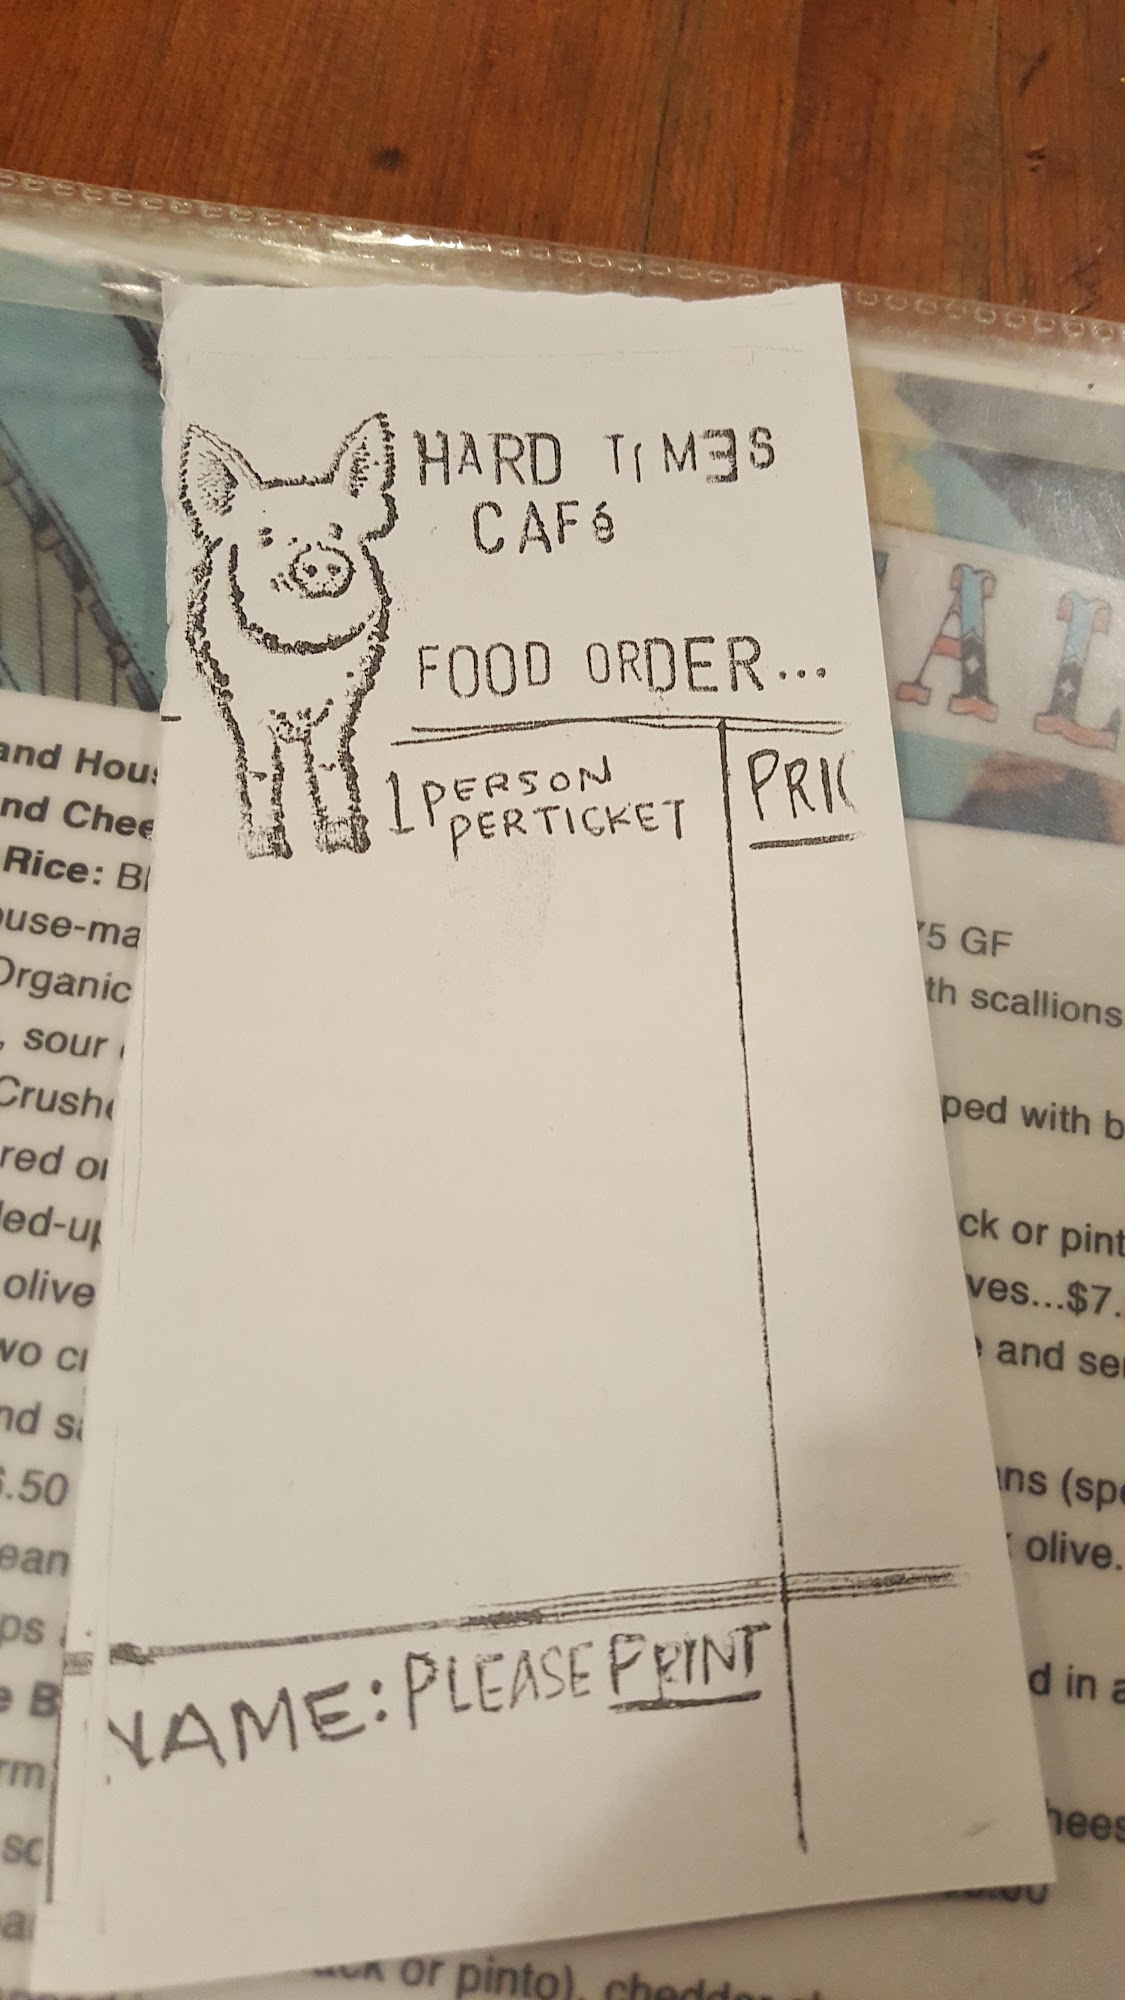 HARD TiMƎS
CAFé
FOOD ORDER...
1 PERSON
PER TICKET
PRIC
NAME: PLEASE PRINT
AL
and Hous
nd Chee
Rice: Bl
ouse-ma
Organic
, sour
Crushe
red or
led-up
olive
wo cr
nd sa
6.50
ean
ps
e B
rm
so
75 GF
th scallions
ped with b
ck or pint
ves...$7.
and ser
ns (spe
olive.
d in a
hees
ck or pinto), chedda